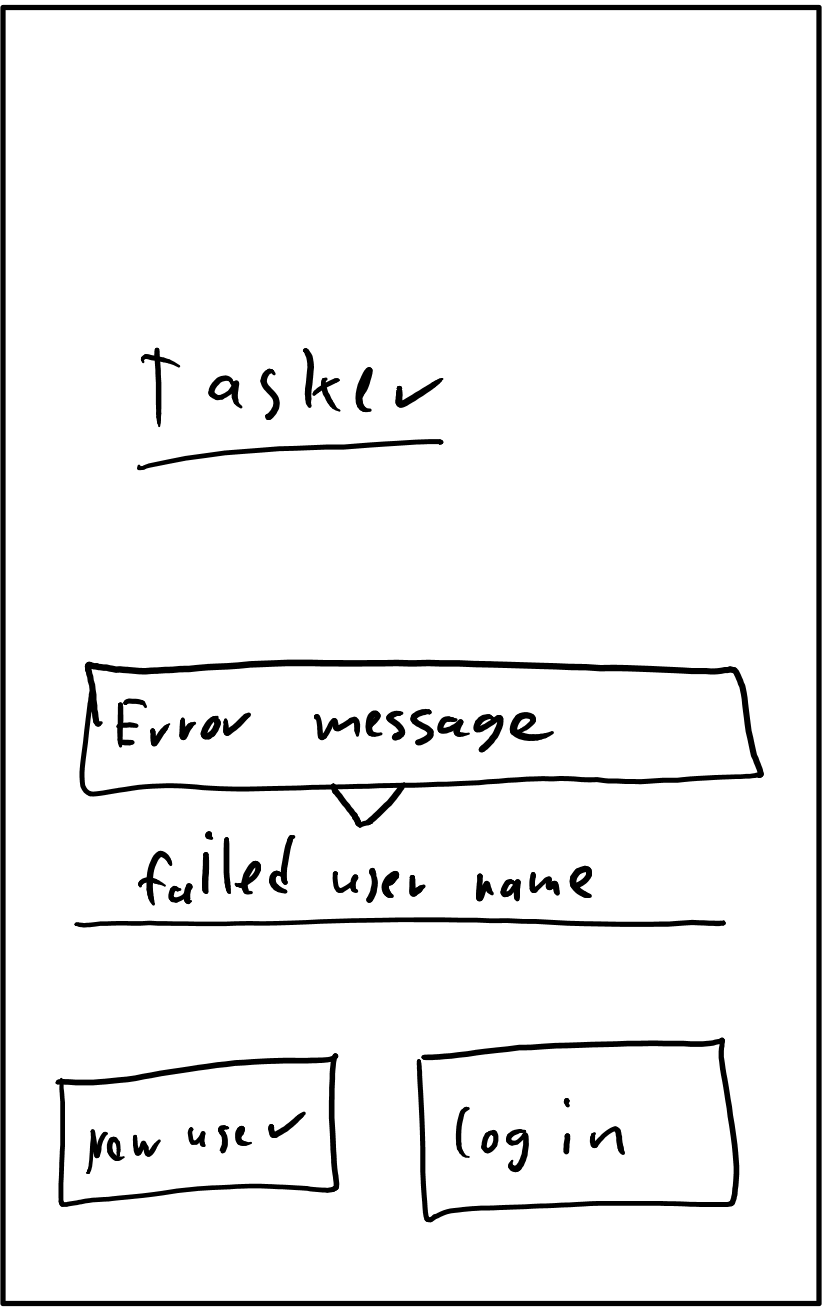 Tasker
Error message
failed user name
New user
Log in